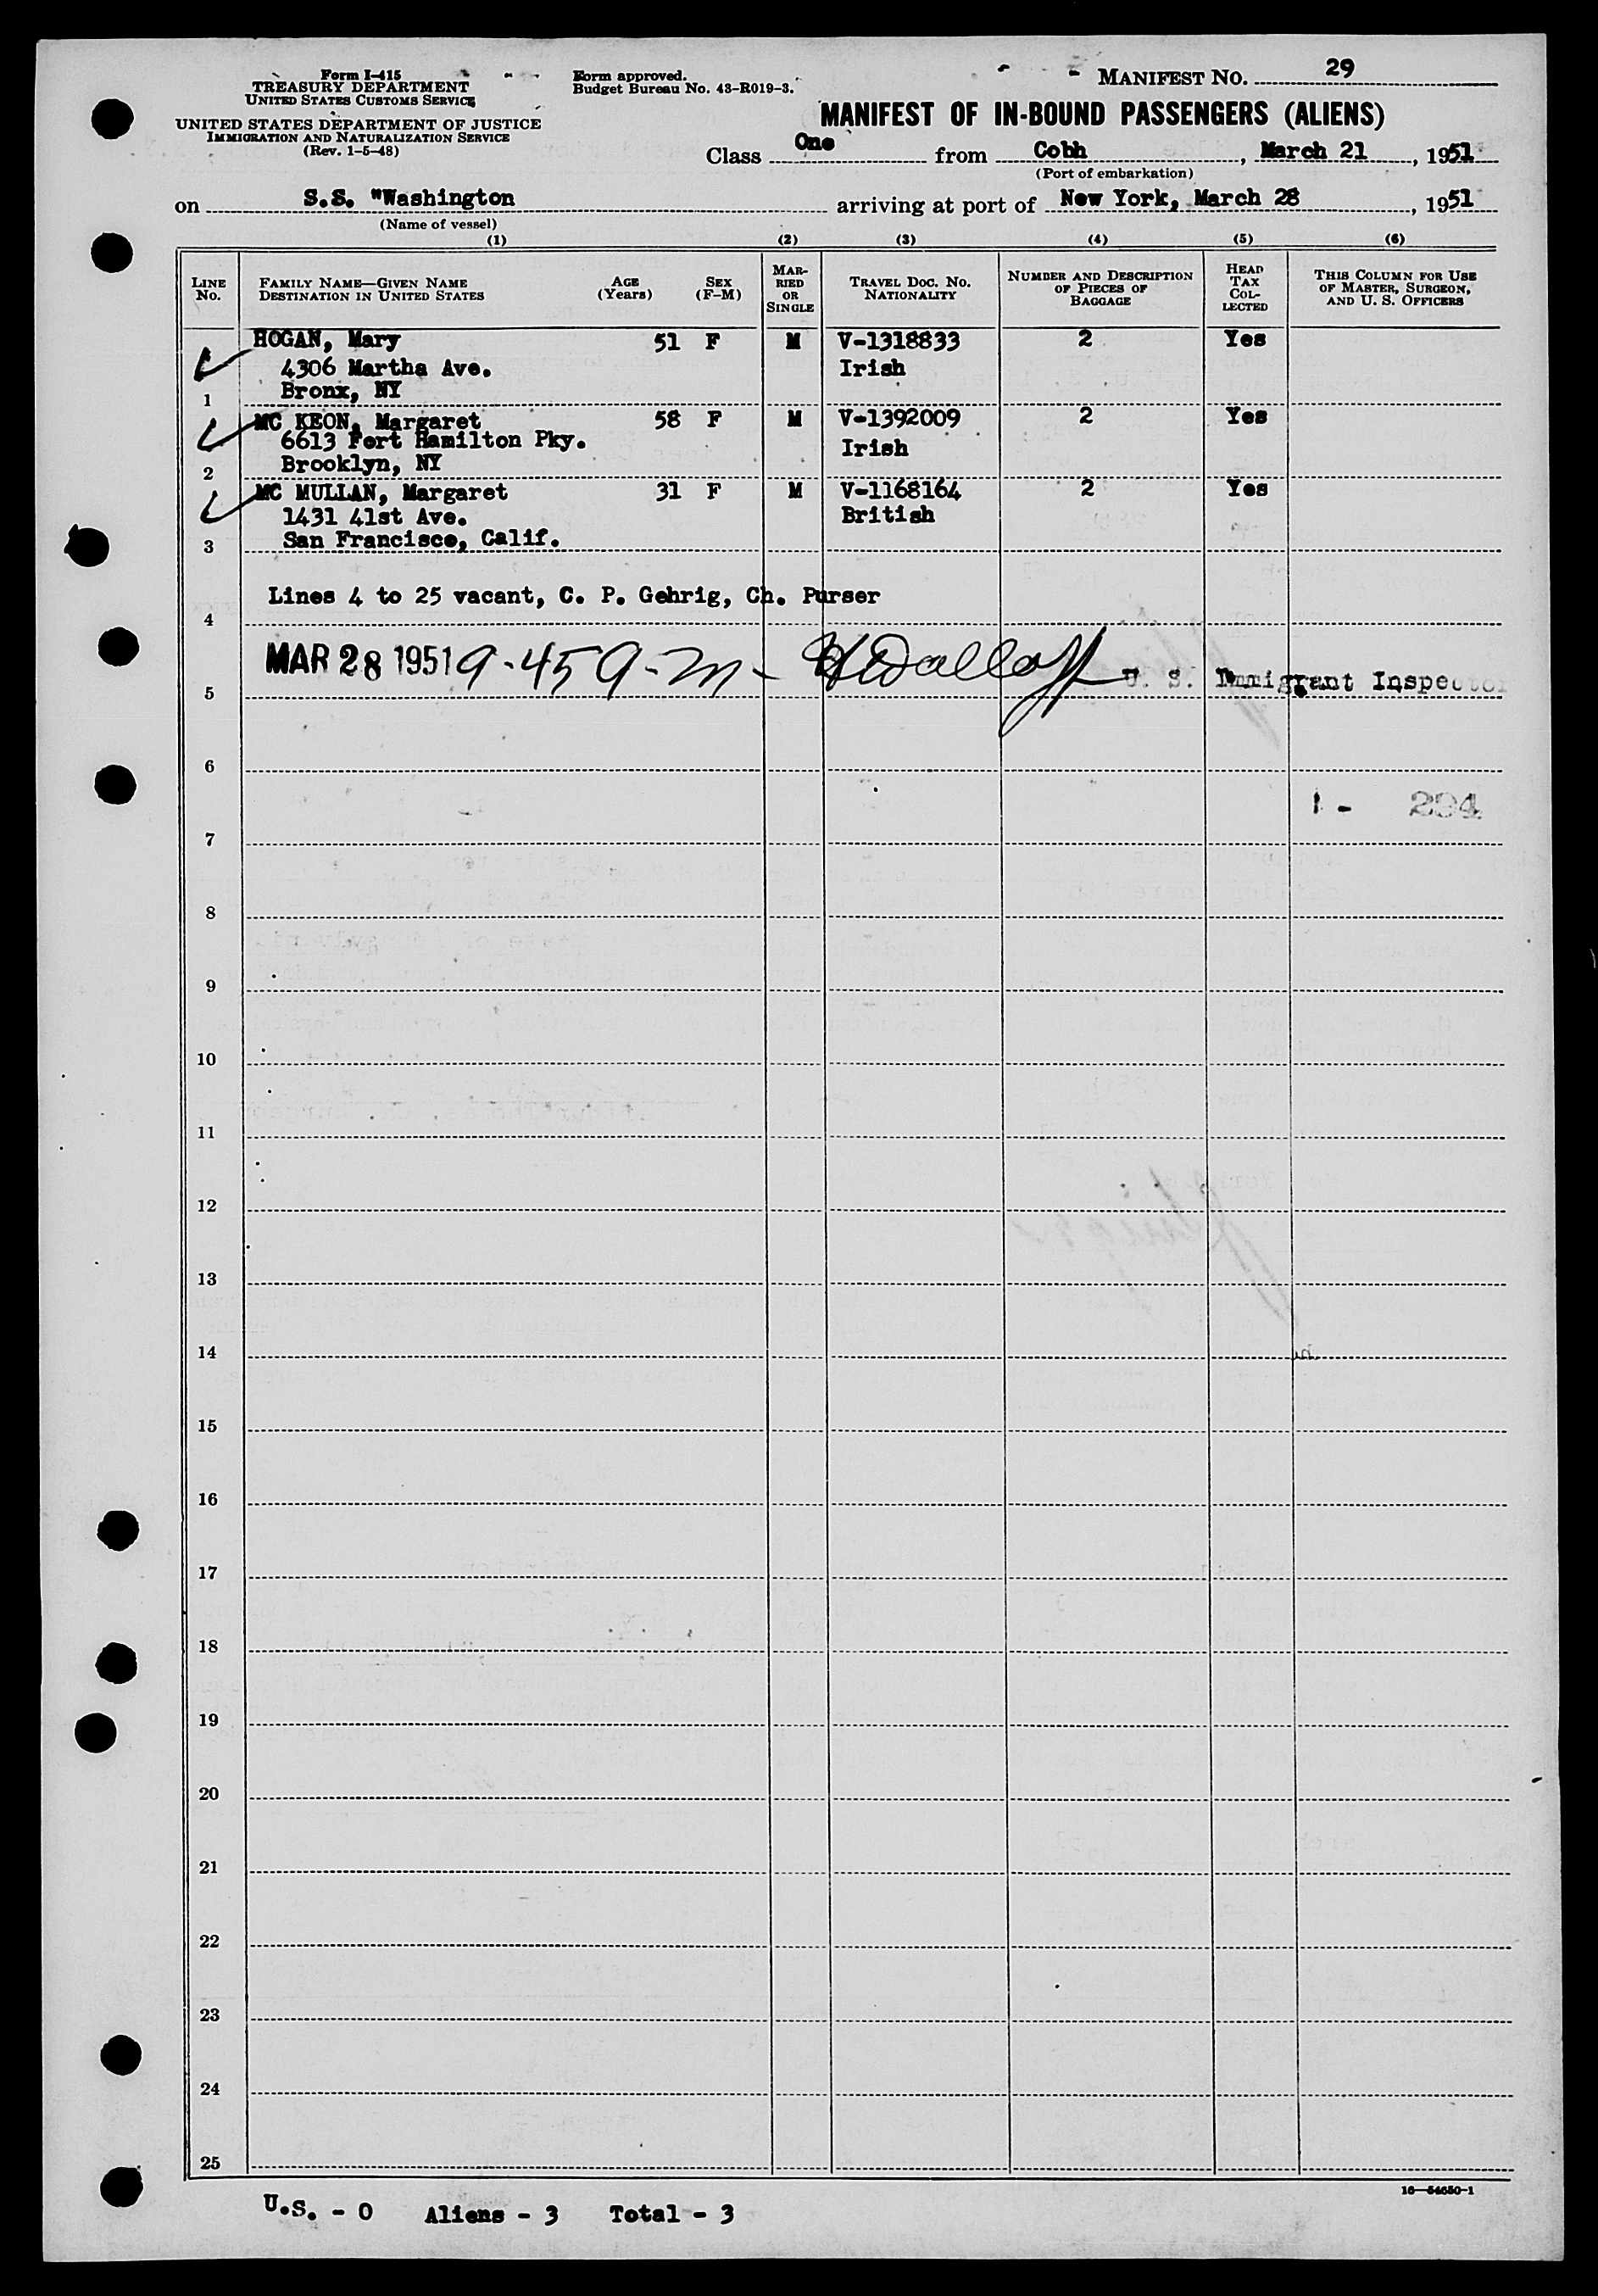 Form I-415
TREASURY DEPARTMENT
UNITED STATES CUSTOMS SERVICE
UNITED STATES DEPARTMENT OF JUSTICE
IMMIGRATION AND NATURALIZATION SERVICE
(Rev. 1-5-48)
Form approved.
Budget Bureau No. 43-R019-3.
MANIFEST NO. 29
MANIFEST OF IN-BOUND PASSENGERS (ALIENS)
Class One from Cobh, March 21, 1951
(Port of embarkation)
on S.S. "Washington arriving at port of New York, March 28, 1951
(Name of vessel)
(1) (2) (3) (4) (5) (6)
LINE No. FAMILY NAME—GIVEN NAME DESTINATION IN UNITED STATES AGE (Years) SEX (F-M) MARRIED OR SINGLE TRAVEL DOC. NO. NATIONALITY NUMBER AND DESCRIPTION OF PIECES OF BAGGAGE HEAD TAX COLLECTED THIS COLUMN FOR USE OF MASTER, SURGEON, AND U. S. OFFICERS
HOGAN, Mary 51 F M V-1318833 2 Yes
4306 Martha Ave. Irish
1 Bronx, NY
MC KEON, Margaret 58 F M V-1392009 2 Yes
6613 Fort Hamilton Pky. Irish
2 Brooklyn, NY
MC MULLAN, Margaret 31 F M V-1168164 2 Yes
1431 41st Ave. British
3 San Francisco, Calif.
Lines 4 to 25 vacant, C. P. Gehrig, Ch. Purser
4
MAR 28 1951 9-45 a-m- U. S. Immigrant Inspector
5
6
1 - 294
7
8
9
10
11
12
13
14
15
16
17
18
19
20
21
22
23
24
25
16—54650-1
U.S. - 0 Aliens - 3 Total - 3